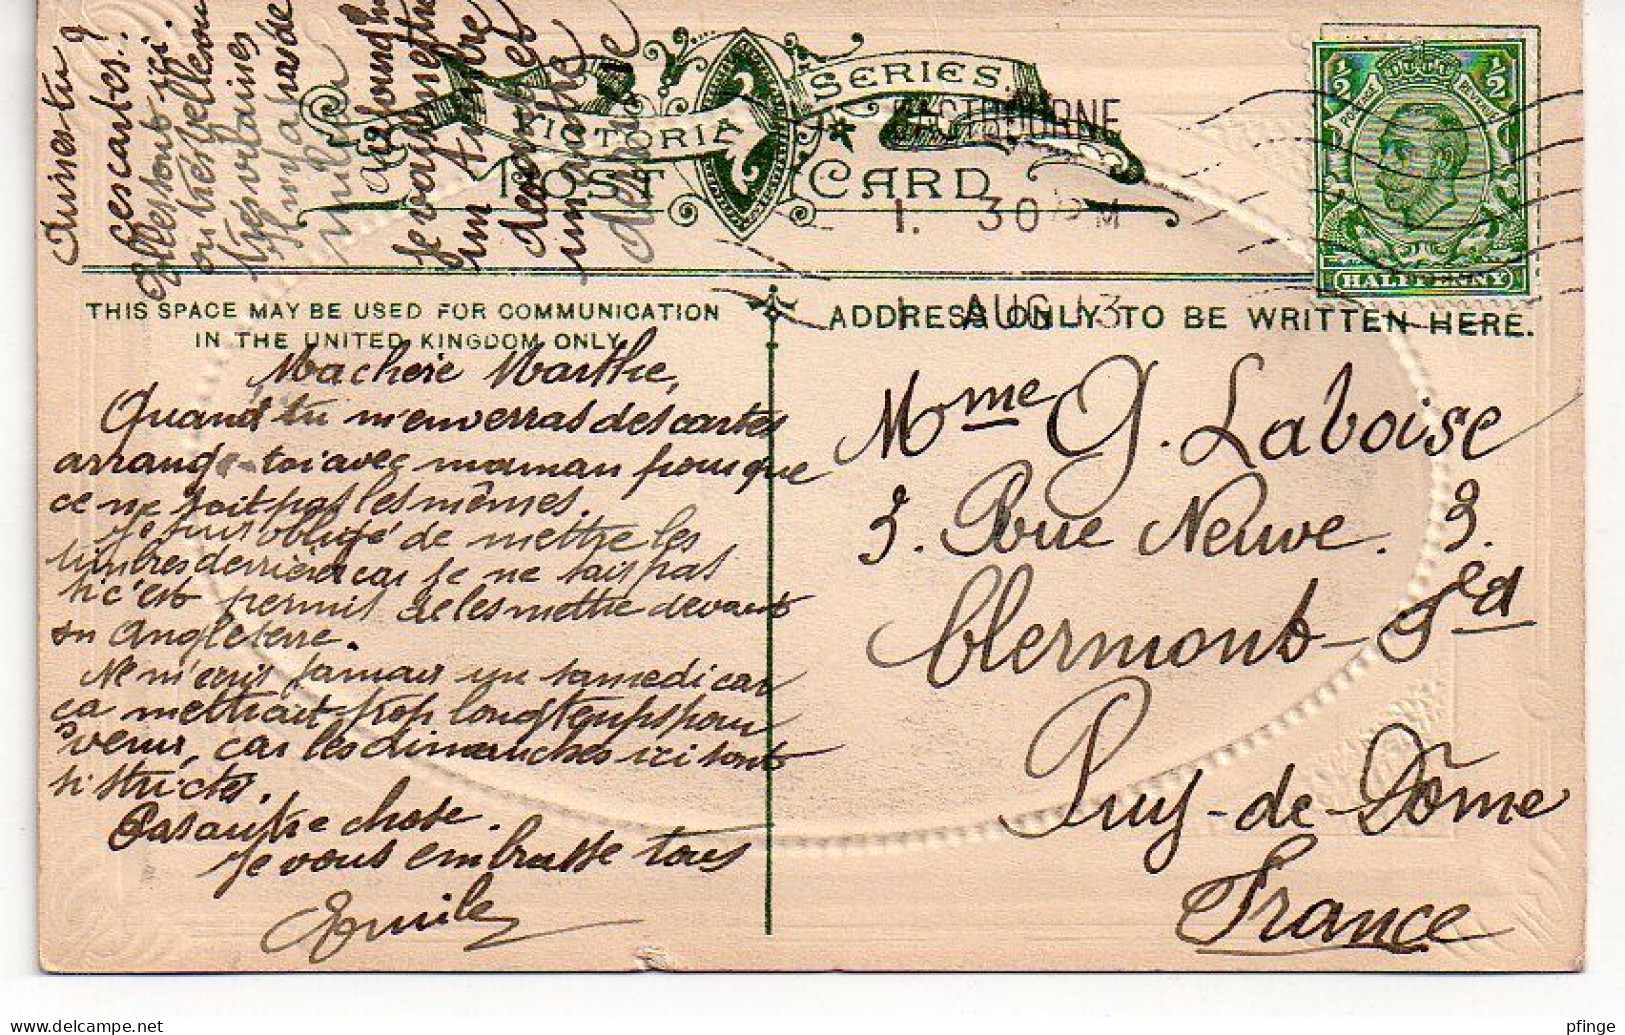 Aimes-tu
ces cartes ?
Elles sont ici
ou très belles ou
très vulaines
VICTORIA SERIES
POST CARD
EASTBOURNE
1. 30 PM
1 AUG 13
1/2 1/2
POSTAGE REVENUE
HALFPENNY
THIS SPACE MAY BE USED FOR COMMUNICATION
IN THE UNITED KINGDOM ONLY
ADDRESS ONLY TO BE WRITTEN HERE.
Ma chère Marthe,
Quand tu m'enverras des cartes
arrange-toi avec maman pour que
ce ne soit pas les mêmes.
Je suis obligé de mettre les
timbres derrière car je ne sais pas
si c'est permis de les mettre devant
en Angleterre.
Ne m'écris jamais un samedi car
ça mettrait trop longtemps pour
venir, car les dimanches ici sont
si stricts.
Pas autre chose.
Je vous embrasse tous
Emile
Mme G. Laboise
3. Rue Neuve. 3.
Clermont-Fd
Puy-de-Dôme
France
pfinge